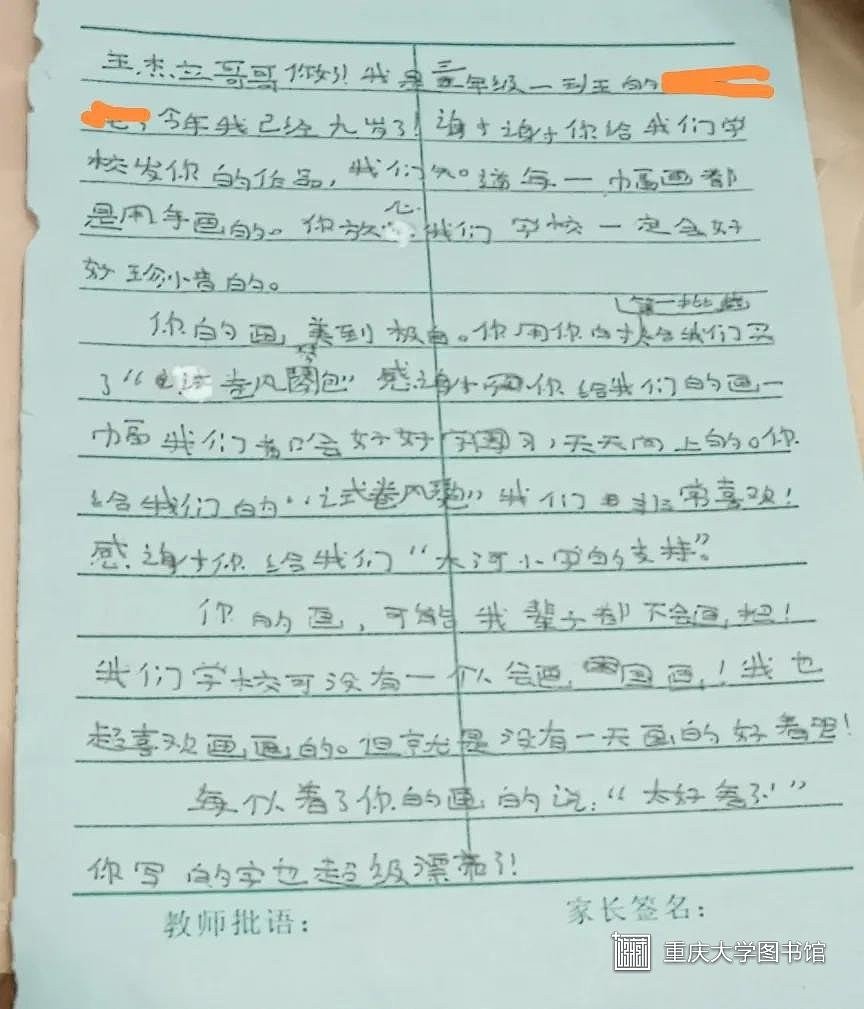 王杰立哥哥你好!我是三年级一班王的
,今年我已经九岁了!谢谢你给我们学
校发你的作品,我们知道每一幅画都
是用手画的。你放心我们学校一定会好
好珍惜的。
第一批
你的画,美到极。你用你的给我们买
了“卷风琴包”感谢你给我们的画一
幅我们都会好好学习,天天向上的。你
给我们的“式卷风”我们非常喜欢!
感谢你给我们“大河小学的支持”。
你的画,可能我辈子都不会画把!
我们学校可没有一个人会画国画!我也
超喜欢画画的。但就是没有一天画的好看呢!
每个人看了你的画的说:“太好看了!”
你写的字也超级漂亮了!
教师批语:
家长签名:
重庆大学图书馆